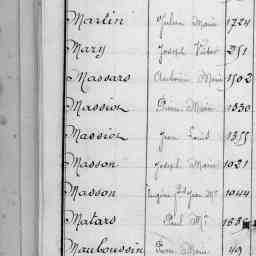 Martin Julien Marie 1224
Mary Joseph Victor 251
Massars Marie 1502
Massiot Pierre Marie 1330
Massiot Jean Louis 1355
Masson Joseph Marie 1021
Masson Eugène Jean Mie 1044
Matars Paul Mie
Mauboussin Pierre Marie 49